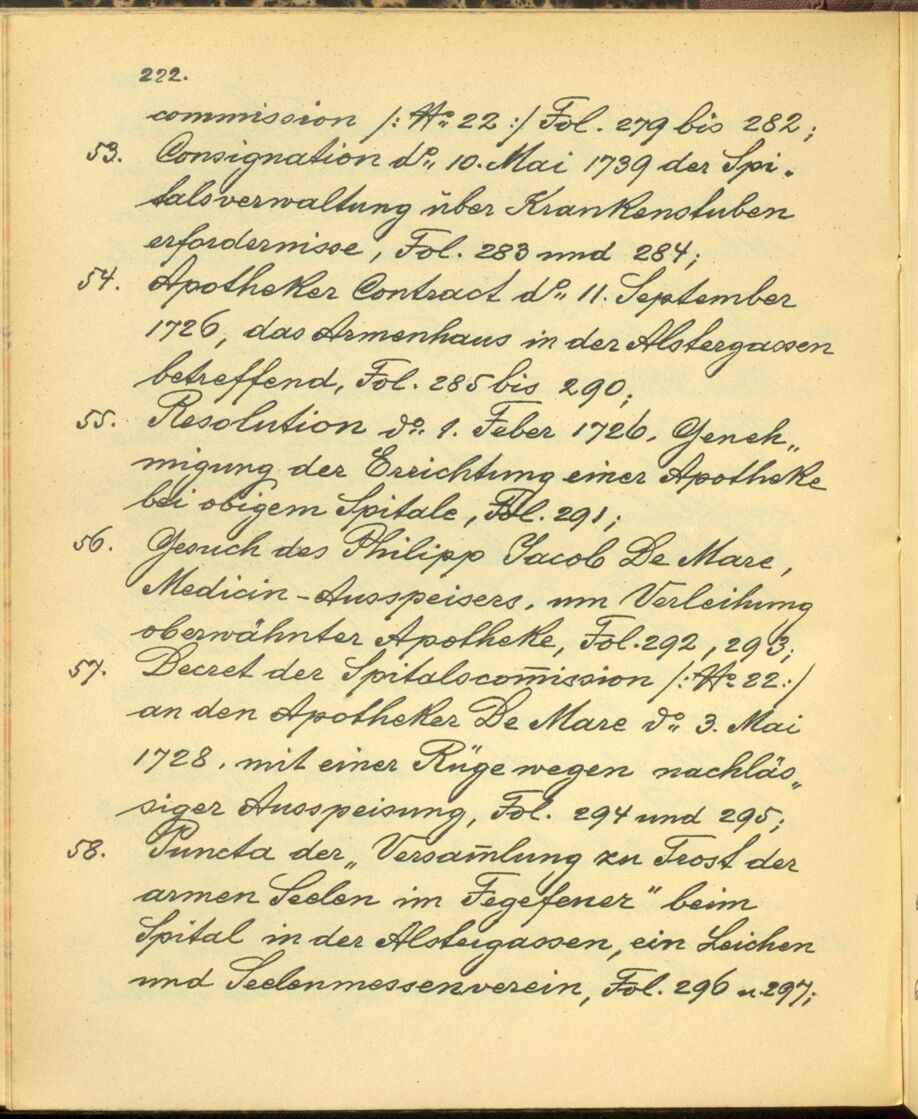 222.
commission /: No 22 :/ Fol. 279 bis 282;
53. Consignation do„ 10. Mai 1739 der Spi„
talsverwaltung über Krankenstuben
erfordernisse, Fol. 283 und 284;
54. Apotheker Contract do„ 11. September
1726, das Armenhaus in der Alstergassen
betreffend, Fol. 285 bis 290;
55. Resolution do„ 1. Feber 1726. Geneh„
migung der Errichtung einer Apotheke
bei obigem Spitale, Fol. 291;
56. Gesuch des Philipp Jacob De Mare,
Medicin-Ausspeisers, um Verleihung
oberwähnter Apotheke, Fol. 292, 293;
57. Decret der Spitalscom̄ission /: No 22 :/
an den Apotheker De Mare do„ 3. Mai
1728, mit einer Rüge wegen nachläs„
siger Ausspeisung, Fol. 294 und 295;
58. Puncta der „Versam̄lung zu Trost der
armen Seelen im Fegefeuer" beim
Spital in der Alstergassen, ein Leichen
und Seelenmessenverein, Fol. 296 u. 297;